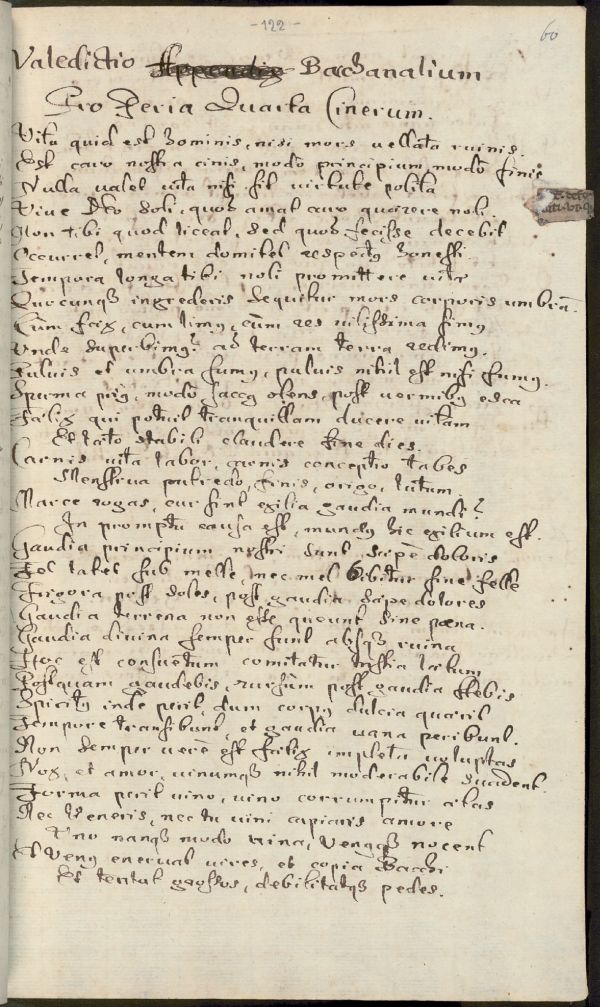 - 122 -
60
Valedictio Appendix Bachanalium
Pro Feria Quarta Cinerum.
Vita quid est hominis, nisi mors vellata ruinis.
Est caro nostra cinis, modo principium modo finis
Nulla valet vita nisi sit virtute polita
Vive Deo soli, quod amat caro quærere noli.
Non tibi quod liceat, sed quod fecisse decebit
Occurrat, mentem domitet respectus honesti.
Tempora longa tibi noli promittere vitæ
Quocunque ingrederis sequitur mors corporis umbra.
Cùm fex, cum limus, cùm res vilissima simus
Unde superbimus? ad terram terra redimus.
Pulvis et umbra sumus, pulvis nihil est nisi fumus.
Spurma prius, modo saccus olens, post vermibus esca
Felix qui potuit tranquillam ducere vitam
Et læto stabili claudere fine dies.
Carnis vita labor, carnis conceptio tabes
Menstrua putredo, finis, origo, lutum.
Marce rogas, cur sint exilia gaudia mundi?
In promptu causa est, mundus hic exilium est.
Gaudia principium nostri sunt sæpè doloris
Fel latet sub melle, nec mel bibitur sine felle
Frigora post soles, post gaudia sæpe dolores
Gaudia terrena non esse queunt sine pœna.
Gaudia divina semper sunt absque ruina
Hoc est consuetum comitatur tristia lætum
Postquam gaudebis, rursùm post gaudia flebis
Spiritus inde perit, dum corpus dulcia quærit
Tempore transibunt, et gaudia vana peribunt.
Non semper verè est felix impleta voluptas
Nox, et amor, vinumque nihil moderabile suadent.
Forma perit vino, vino corrumpitur ætas
Nec Veneris, nec tu vini capiaris amore
Uno namque modo vina, Venusque nocent
Ut Venus enervat vires, et copia Bacchi
Et tentat gressus, debilitatque pedes.